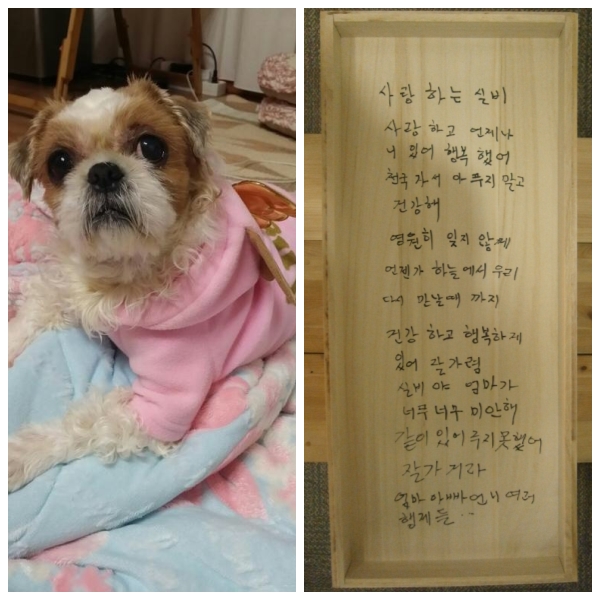 사랑 하는 실비
사랑 하고 언제나
니 있어 행복 했어
천국 가서 아푸지 말고
건강해
영원히 잊지 않께
언젠가 하늘에서 우리
다시 만날때 까지
건강 하고 행복하게
있어 잘가렴
실비 야 엄마가
너무 너무 미안해
같이 있어 주지 못했어
잘가 거라
엄마 아빠 언니 여러
행제들..